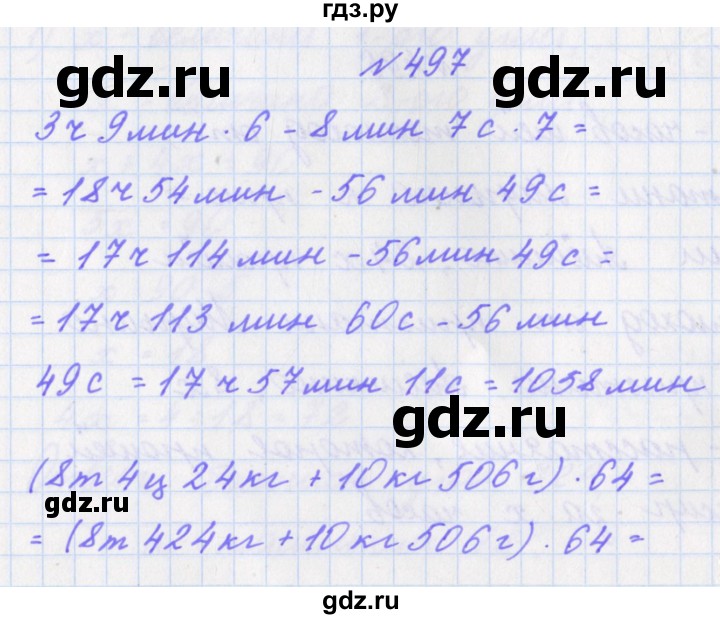 гдз.ру
№ 497
gdz.ru gdz.ru
3ч 9мин · 6 - 8мин 7с · 7 =
= 18ч 54мин - 56мин 49с =
= 17ч 114мин - 56мин 49с =
= 17ч 113мин 60с - 56мин
49с = 17ч 57мин 11с = 1058мин
gdz.ru
(8т 4ц 24кг + 10кг 506г) · 64 =
gdz.ru
= (8т 424кг + 10кг 506г) · 64 =
gdz.ru